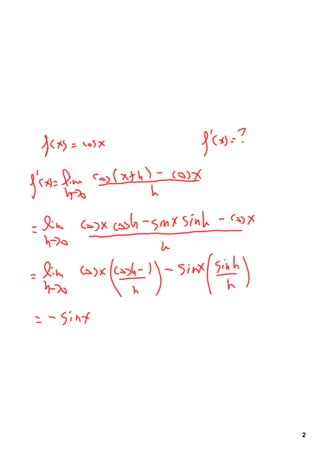 f(x) = cosx f'(x) = ?
f'(x) = lim h→0 (cos(x+h) - cosx)/h
= lim h→0 (cosx cosh - sinx sinh - cosx)/h
= lim h→0 cosx ((cosh-1)/h) - sinx (sinh/h)
= - sinx
2